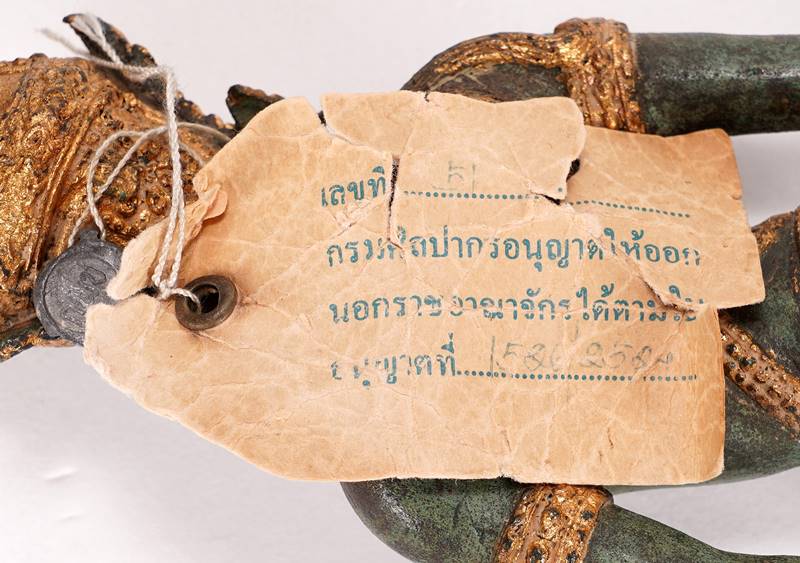 เลขที่
กรมศิลปากรอนุญาตให้ออก
นอกราชอาณาจักรได้ตามใบ
อนุญาตที่